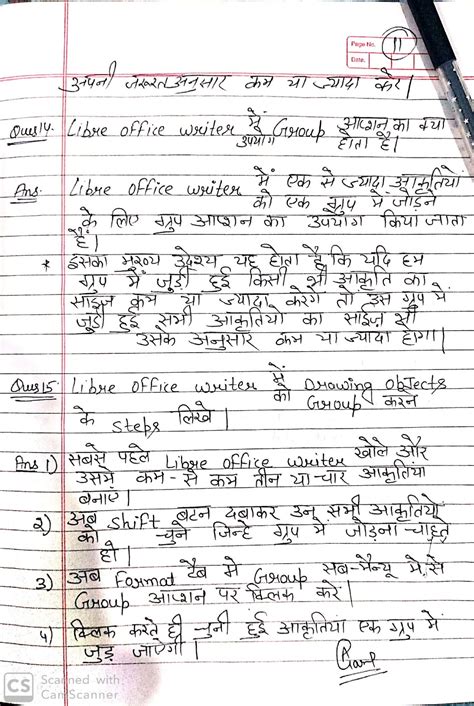 Page No. 11
Date.
अपनी जरूरत अनुसार कम या ज्यादा करें।
Ques14. Libre office writer में Group आप्शन का क्या
उपयोग होता है।
Ans. Libre office writer में एक से ज्यादा आकृतियो
को एक ग्रुप में जोड़ने
के लिए ग्रुप आप्शन का उपयोग किया जाता
है।
* इसका मुख्य उद्देश्य यह होता है कि यदि हम
ग्रुप में जुड़ी हुई किसी भी आकृति का
साईज कम या ज्यादा करेंगे तो उस ग्रुप में
जुड़ी हुई सभी आकृतियो का साईज़ भी
उसके अनुसार कम या ज्यादा होगा।
Ques15. Libre office writer में Drawing objects
को Group करने
के steps लिखे।
Ans 1) सबसे पहले Libre office writer खोले और
उसमें कम-से कम तीन या-चार आकृतियां
बनाएं।
2) अब shift बटन दबाकर उन सभी आकृतियो
को चुने जिन्हे ग्रुप में जोड़ना-चाहते
हो।
3) अब Format टैब में Group सब-मैन्यू में से
Group आप्शन पर क्लिक करें।
4) क्लिक करते ही चुनी हुई आकृतियां एक ग्रुप में
जुड़ जाएंगी।
CS Scanned with
CamScanner